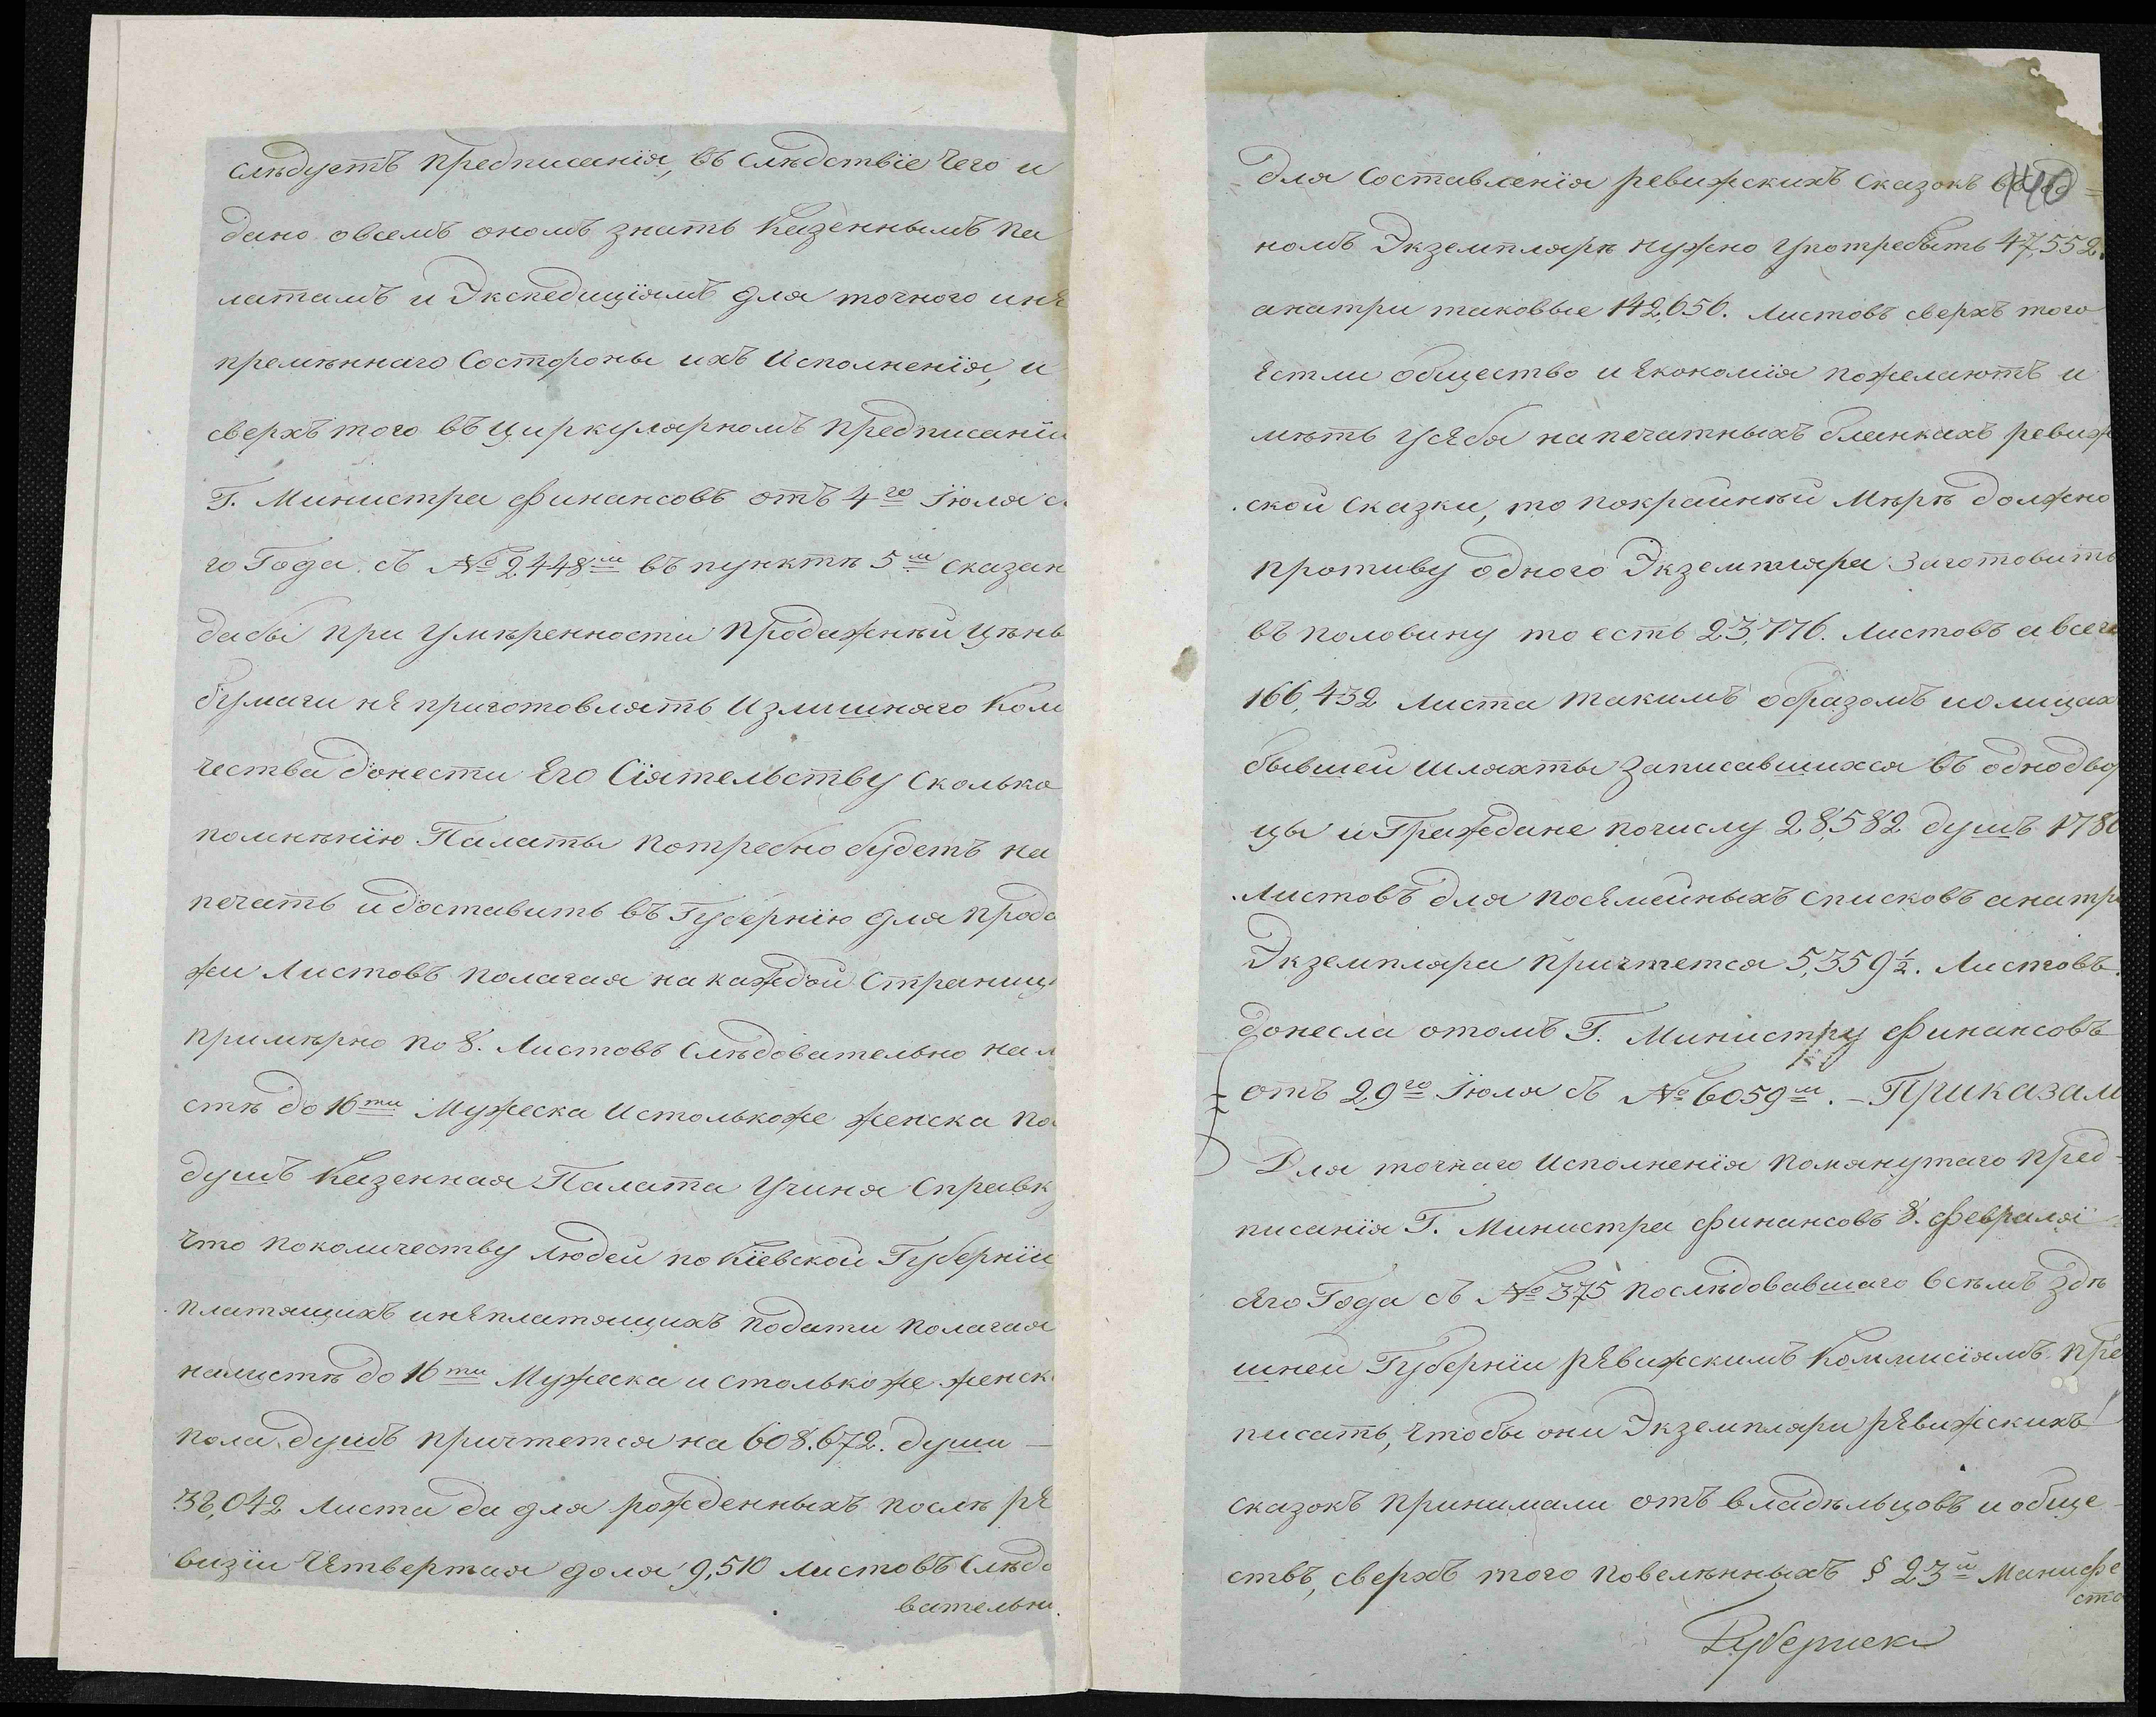 слѣдуетъ предписанія, въ слѣдствіе чего и
дано овсемъ ономъ знать Казеннымъ Па
латамъ и Экспедиціямъ для точного ине
премѣннаго состороны ихъ исполненія, и
сверхъ того въ циркулярномъ предписаніи
Г. Министра финансовъ отъ 4го Іюля се
го Года съ № 2448м въ пунктѣ 5м сказан
дабы при умѣренности продажнѣй цѣны
бумаги не приготовлять излишняго Коли
чества донести Его Сіятельству сколько
помнѣнію Палаты потребно будетъ на
печать идоставить въ Губернію для прода
жи Листовъ полагая на каждой страниц
примѣрно по 8. Листовъ слѣдовательно на л
стѣ до 16ти Мужеска истолькоже женска по
душъ Казенная Палата учиня справк
что поколичеству людей по Кіевской Губерніи
платящихъ инеплатящихъ подати полагая
налистѣ до 16ти Мужеска и столькоже женск
пола душъ причтется на 608.672. души —
38,042 листа да для рожденныхъ послѣ ре
визіи четвертая доля 9,510 листовъ слѣдо
вательно
для составленія ревижскихъ сказокъ въ од=
140
номъ Экземплярѣ нужно употребить 47,552.
анатри таковые 142,656. листовъ сверхъ того
естли общество и економія пожелаютъ и
мѣть усебя напечатныхъ бланкахъ ревиж
ской сказки, то покрайнѣй мѣрѣ должно
противу одного Экземпляра заготовить
въ половину то есть 23,776. листовъ а всего
166,432 листа такимъ образомъ иолицах
бывшей шляхты записавшихся въ однодвор
цы и Граждане почислу 28,582 душъ 1786
листовъ для посемейныхъ списковъ анатри
Экземпляра причтется 5,359½. Листовъ.
донесла отомъ Г. Министру финансовъ
отъ 29го Іюля съ № 6059м. – Приказали
Для точнаго исполненія помянутаго пред-
писанія Г. Министра финансовъ 8. февраля
сего Года съ № 375 послѣдовавшаго всѣмъ здѣ
шней Губерніи ревижскимъ Коммисіямъ пре
писать, чтобы они Экземпляры ревижскихъ
сказокъ принимали отъ владѣльцовъ и обще-
ствъ, сверхъ того повелѣнныхъ § 23й Манифе
ста